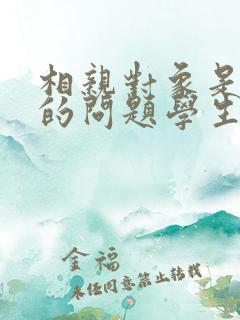 相親對象是
的問題學生
金福
未經同意禁止轉載